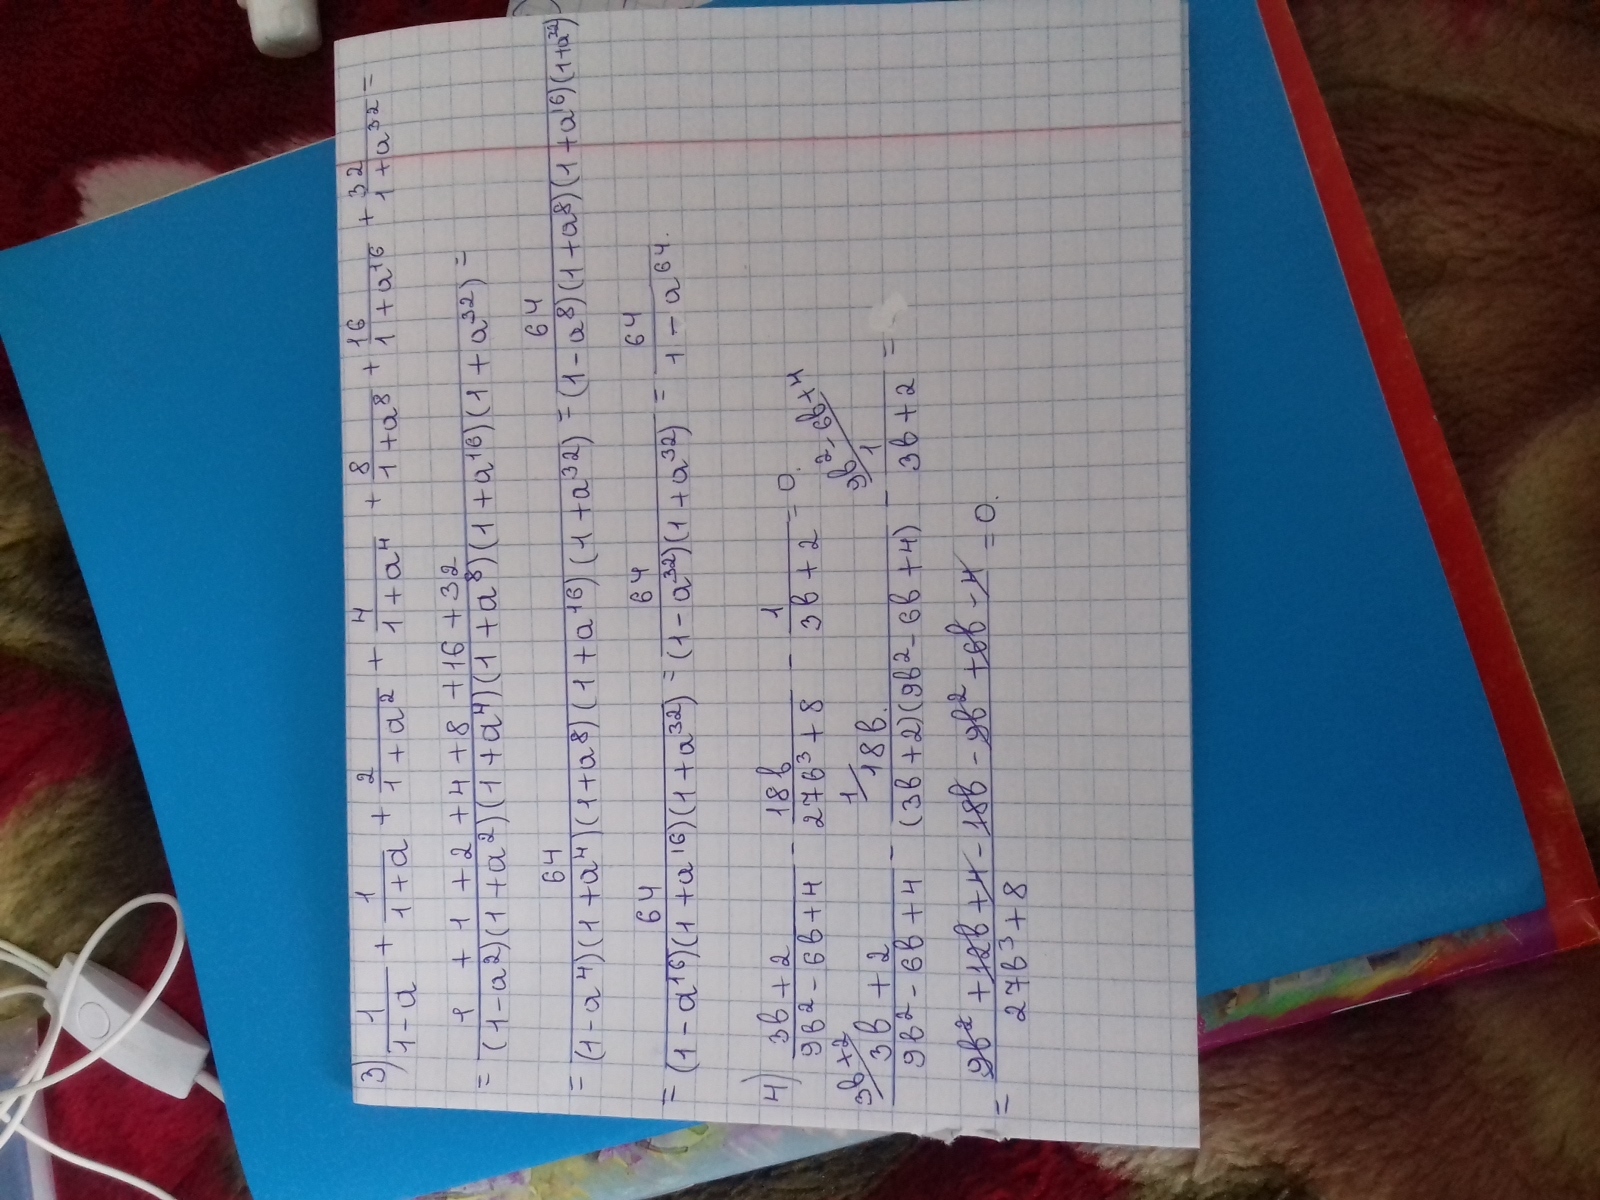 3) 1/(1-a) + 1/(1+a) + 2/(1+a²) + 4/(1+a⁴) + 8/(1+a⁸) + 16/(1+a¹⁶) + 32/(1+a³²) =
= (1 + 1 + 2 + 4 + 8 + 16 + 32)/((1-a²)(1+a²)(1+a⁴)(1+a⁸)(1+a¹⁶)(1+a³²)) =
= 64/((1-a⁴)(1+a⁴)(1+a⁸)(1+a¹⁶)(1+a³²)) = 64/((1-a⁸)(1+a⁸)(1+a¹⁶)(1+a³²))
= 64/((1-a¹⁶)(1+a¹⁶)(1+a³²)) = 64/((1-a³²)(1+a³²)) = 64/(1-a⁶⁴).
4) (3в+2)/(9в²-6в+4) - 18в/(27в³+8) - 1/(3в+2) = 0.
3в+2/ (3в+2)/(9в²-6в+4) - 1/ 18в./((3в+2)(9в²-6в+4)) - 9в²-6в+4/ 1/(3в+2) =
= (9в²+12в+4-18в-9в²+6в-4)/(27в³+8) = 0.